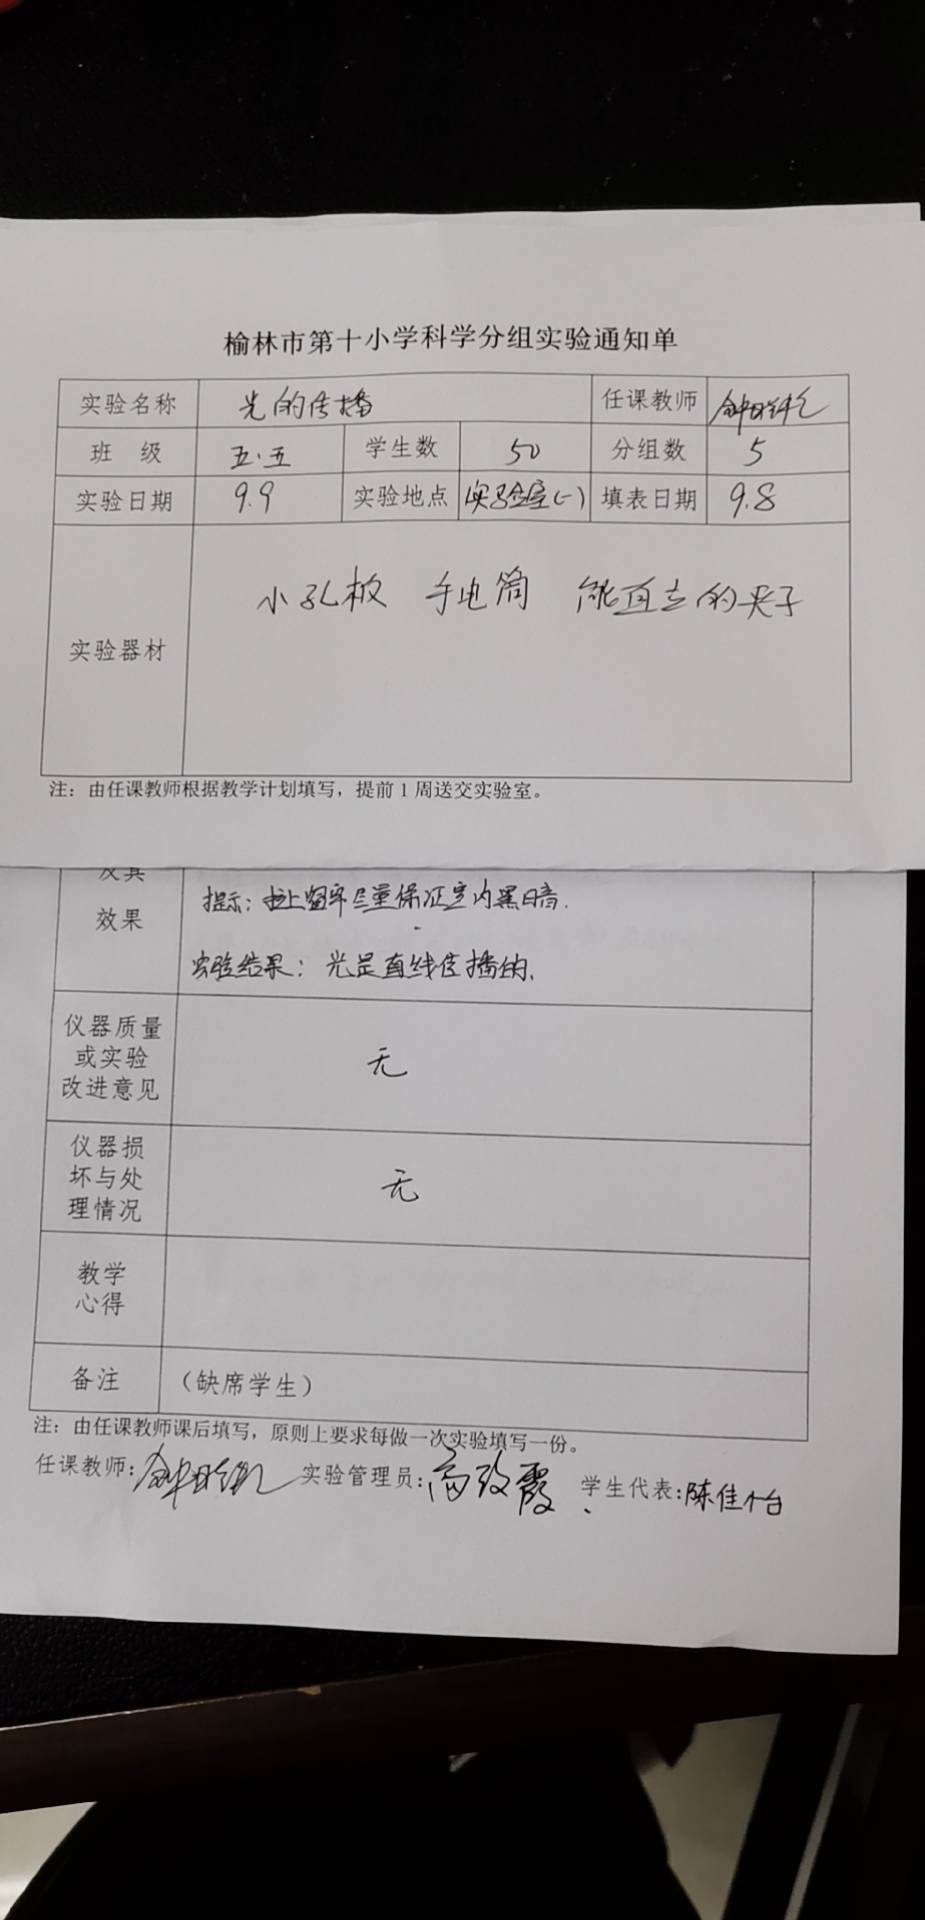 榆林市第十小学科学分组实验通知单
实验名称 光的传播 任课教师
班 级 五.五 学生数 50 分组数 5
实验日期 9.9 实验地点 实验室(一) 填表日期 9.8
小孔板 手电筒 能直立的夹子
实验器材
注：由任课教师根据教学计划填写，提前1周送交实验室。
及其
效果
提示：拉上窗帘尽量保证室内黑暗.
实验结果：光是直线传播的.
仪器质量
或实验
改进意见
无
仪器损
坏与处
理情况
无
教学
心得
备注 （缺席学生）
注：由任课教师课后填写，原则上要求每做一次实验填写一份。
任课教师: 实验管理员:高改霞 学生代表:陈佳怡